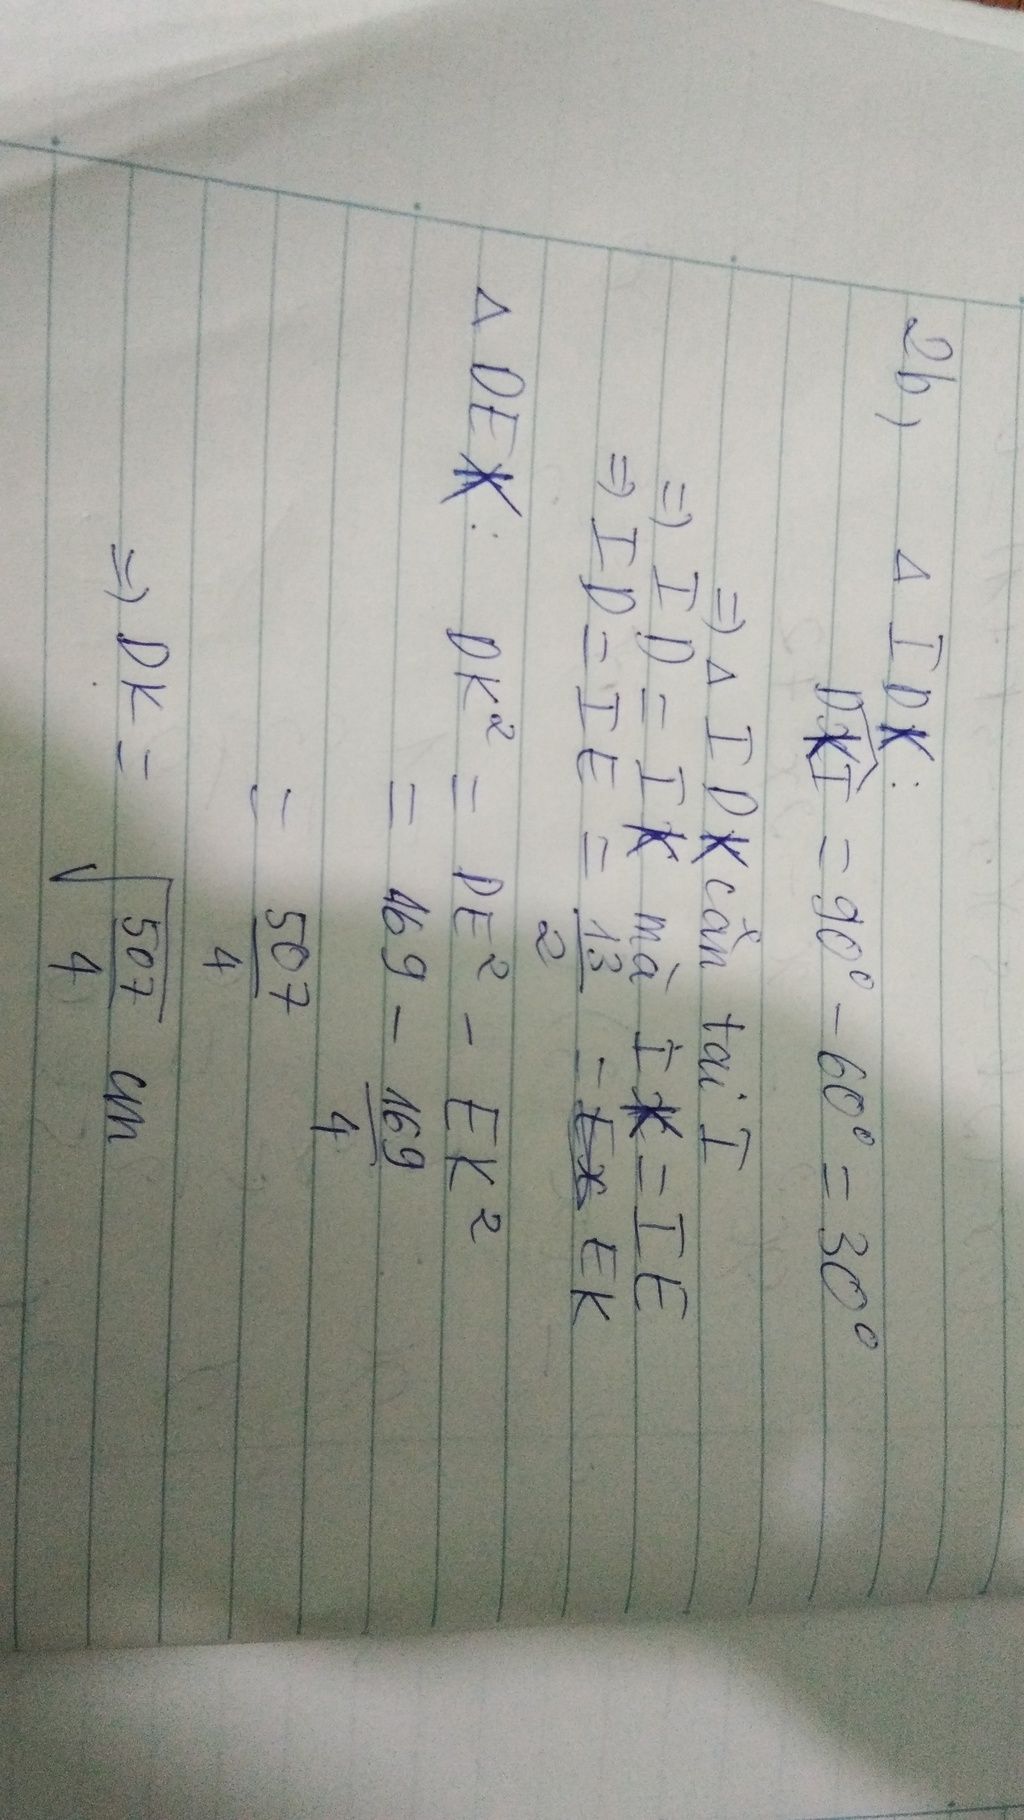 2b, Δ IDK:
DKI = 90° - 60° = 30°
=> Δ IDK cân tại I
=> ID = IK mà IK = IE
=> ID = IE = 13/2 = EK
Δ DEK: DK² = DE² - EK²
= 169 - 169/4
= 507/4
=> DK = √507/4 cm